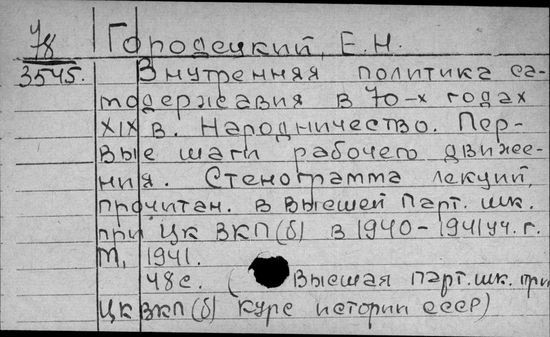 У8
3545.
Городецкий, Е.Н.
Внутренняя политика са-
модержавия в 70-х годах
XIX в. Народничество. Пер-
вые шаги рабочего движе-
ния. Стенограмма лекций,
прочитан. в Высшей Парт. шк.
при ЦК ВКП(б) в 1940-1941 уч. г.
М., 1941.
48 с. (Высшая парт. шк. при
ЦК ВКП(б) Курс истории СССР)